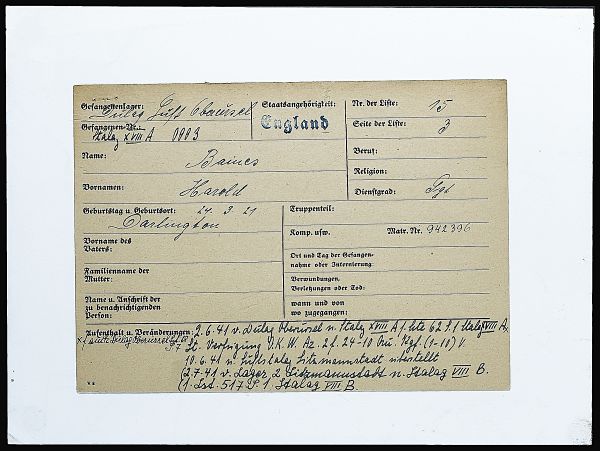 Gefangenenlager: Dulag Luft Oberursel
Gefangenen-Nr.: Stalag XVIII A 0003
Staatsangehörigkeit:
England
Nr. der Liste: 15
Seite der Liste: 3
Name: Baines
Beruf:
Religion:
Vornamen: Harold
Dienstgrad: Sgt
Geburtstag u Geburtsort: 24.3.21
Darlington
Truppenteil:
Komp. usw. Matr. Nr. 942396
Vorname des
Vaters:
Ort und Tag der Gefangen-
nahme oder Internierung:
Familienname der
Mutter:
Verwundungen,
Verletzungen oder Tod:
Name u. Anschrift der
zu benachrichtigenden
Person:
wann und von
wo zugegangen:
Aufenthalt u. Veränderungen: 2.6.41 v. Dulag Oberursel n. Stalag XVIII A 1. Liste 62 S. 1 Stalag XVIII A.
Lt. Verfügung O.K.W. Az. 2f. 24-10 Kgf. (1-10) V
10.6.41 n. Luftstalag Litzmannstadt überstellt
12.7.41 v. Lager 2 Litzmannstadt n. Stalag VIII B.
(1. Lst. 517 S. 1. Stalag VIII B